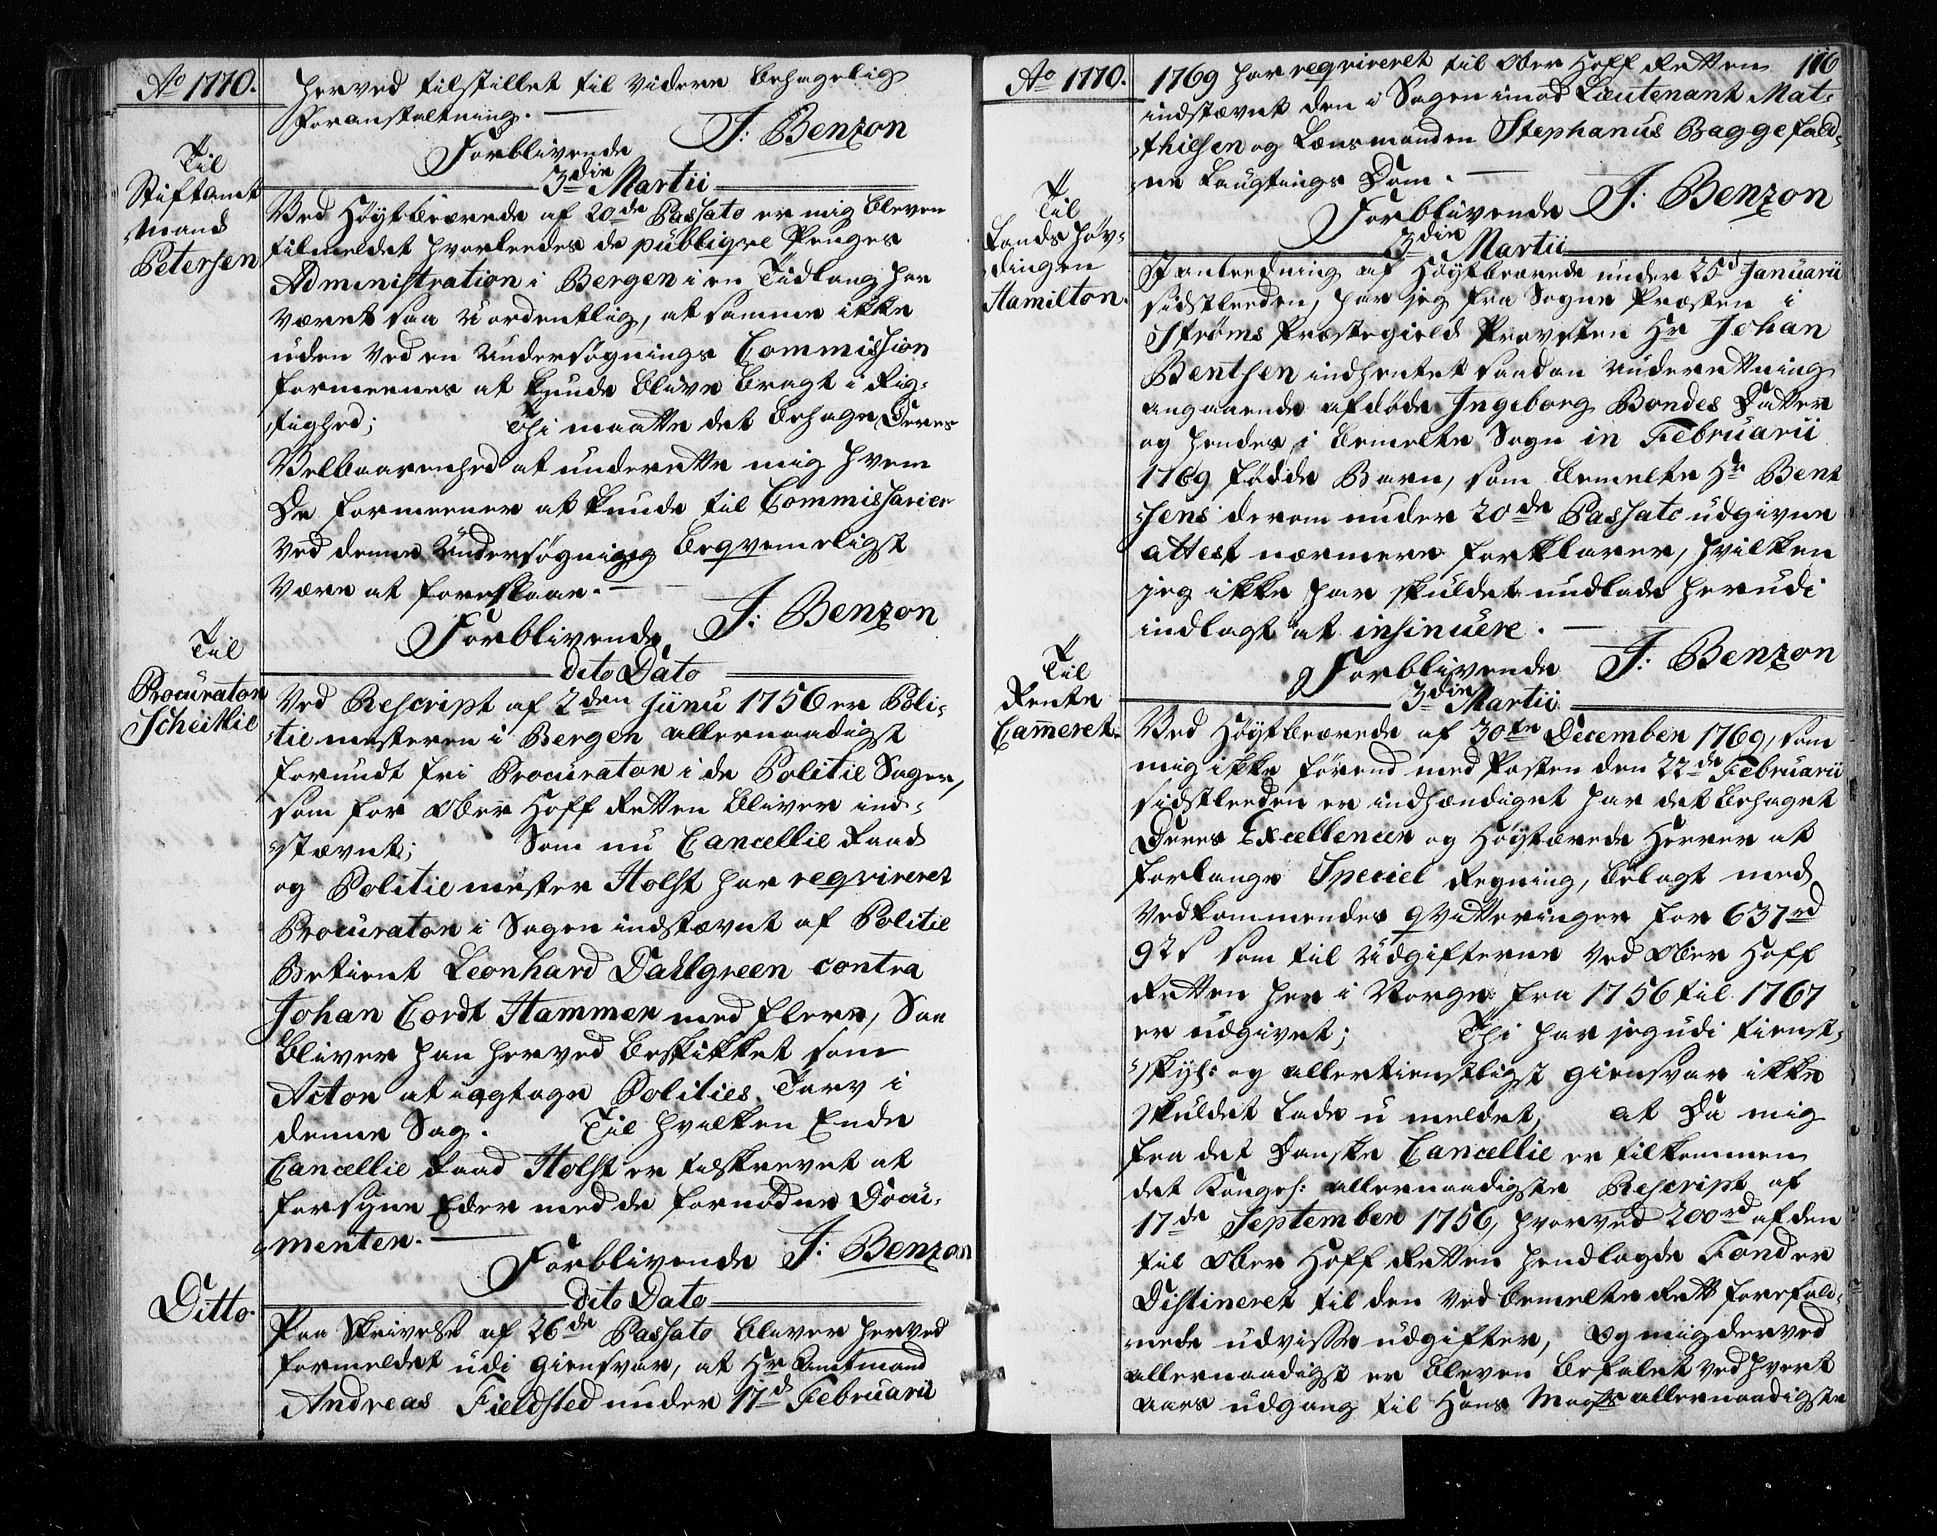 Ao 1770.
herved tilstillet til videre behagelig
Foranstaltning.
Forblivende J: Benzon
3die Martii
Til
Stiftamt
mand
Petersen
Ved Høystbærede af 20de Passato er mig bleven
tilmeldet hvorleedes de publiqve Penges
Administration i Bergen i en Tidlang har
været saa uordentlig, at samme ikke
uden ved en Undersøgnings Commission
formeenes at kunde blive bragt i Rig-
tighed; Thi maatte det behage Deres
Velbaarenhed at underrette mig hvem
De formeener at kunde til Commissarier
ved denne Undersøgning beqvemmeligst
være at foreslaae.
Forblivende J: Benzon
dito Dato
Til
Procurator
Scheitlie
Ved Rescript af 2den Junii 1756 er Poli-
tiemesteren i Bergen allernaadigst
forundt fri Procurator i de Politie Sager,
som for Ober Hoff Retten bliver ind-
stævnt; Som nu Cancellie Raad
og Politiemester Holst har reqvireret
Procurator i Sagen indstævnt af Politie
Betient Leonhard Dahlgreen contra
Johan Cordt Hammer med flere, Saa
bliver han herved beskikket som
Actor at iagtage Polities Tarv i
denne Sag. Til hvilken Ende
Cancellie Raad Holst er tilskrevet at
forsyne Eder med de fornødne Docu-
menter.
Forblivende J: Benzon
dito Dato
Ditto.
Paa Skrivelse af 26de Passato bliver herved
formeldet udi Giensvar, at Hr Amtmand
Andreas Fieldsted under 17d Februarii
Ao 1770.
116
1769 har reqvireret til Ober Hoff Retten
indstævnt den i Sagen imod Lieutenant Mat-
thiesen og Lænsmanden Stephanus Bagge fald-
ne Laugtings Dom.
Forblivende J: Benzon
3die Martii
Til
Lands Høv-
dingen
Hamilton.
I anledning af Høystbærede under 25d Januarii
sidstleeden, har jeg fra Sogne Præsten i
Strøms Præstegield Provsten Hr Johan
Bentsen indhentet saadan underretning
angaaende afdøde Ingeborg Bondes Datter
og hendes i bemelte Sogn in Februarii
1769 fødde Barn, som bemelte Hr Bent
sens derom under 20de Passato udgivne
attest nærmere forklarer, hvilken
jeg ikke har skuldet undlade herudi
indlagt at insinuere.
Forblivende J: Benzon
3die Martii
Til
Rente
Cammeret.
Ved Høystbærede af 30te December 1769, som
mig ikke førend med Posten den 22de Februarii
sidstleeden er indhændiget har det behaget
Deres Excellencer og Høystærede Herrer at
forlange Speciel Regning, belagt med
vedkommendes qvitteringer for 637rd
92s som til Udgifterne ved Ober Hoff
Retten her i Norge fra 1756 til 1767
er udgivet; Thi har jeg udi tienst-
skyl: og allertienstligst Giensvar ikke
skuldet lade umeldet, at Da mig
fra det Danske Cancellie er tilkommen
det Kongel: allernaadigste Rescript af
17de September 1756, hvorved 200rd af den
til Ober Hoff Retten henlagde Fond er
Distineret til den ved bemelte Rett forefald-
nede udvisse udgifter, Og mig derved
allernaadigst er bleven befalet ved hvert
Aars udgang til Hans Mayts allernaadigste